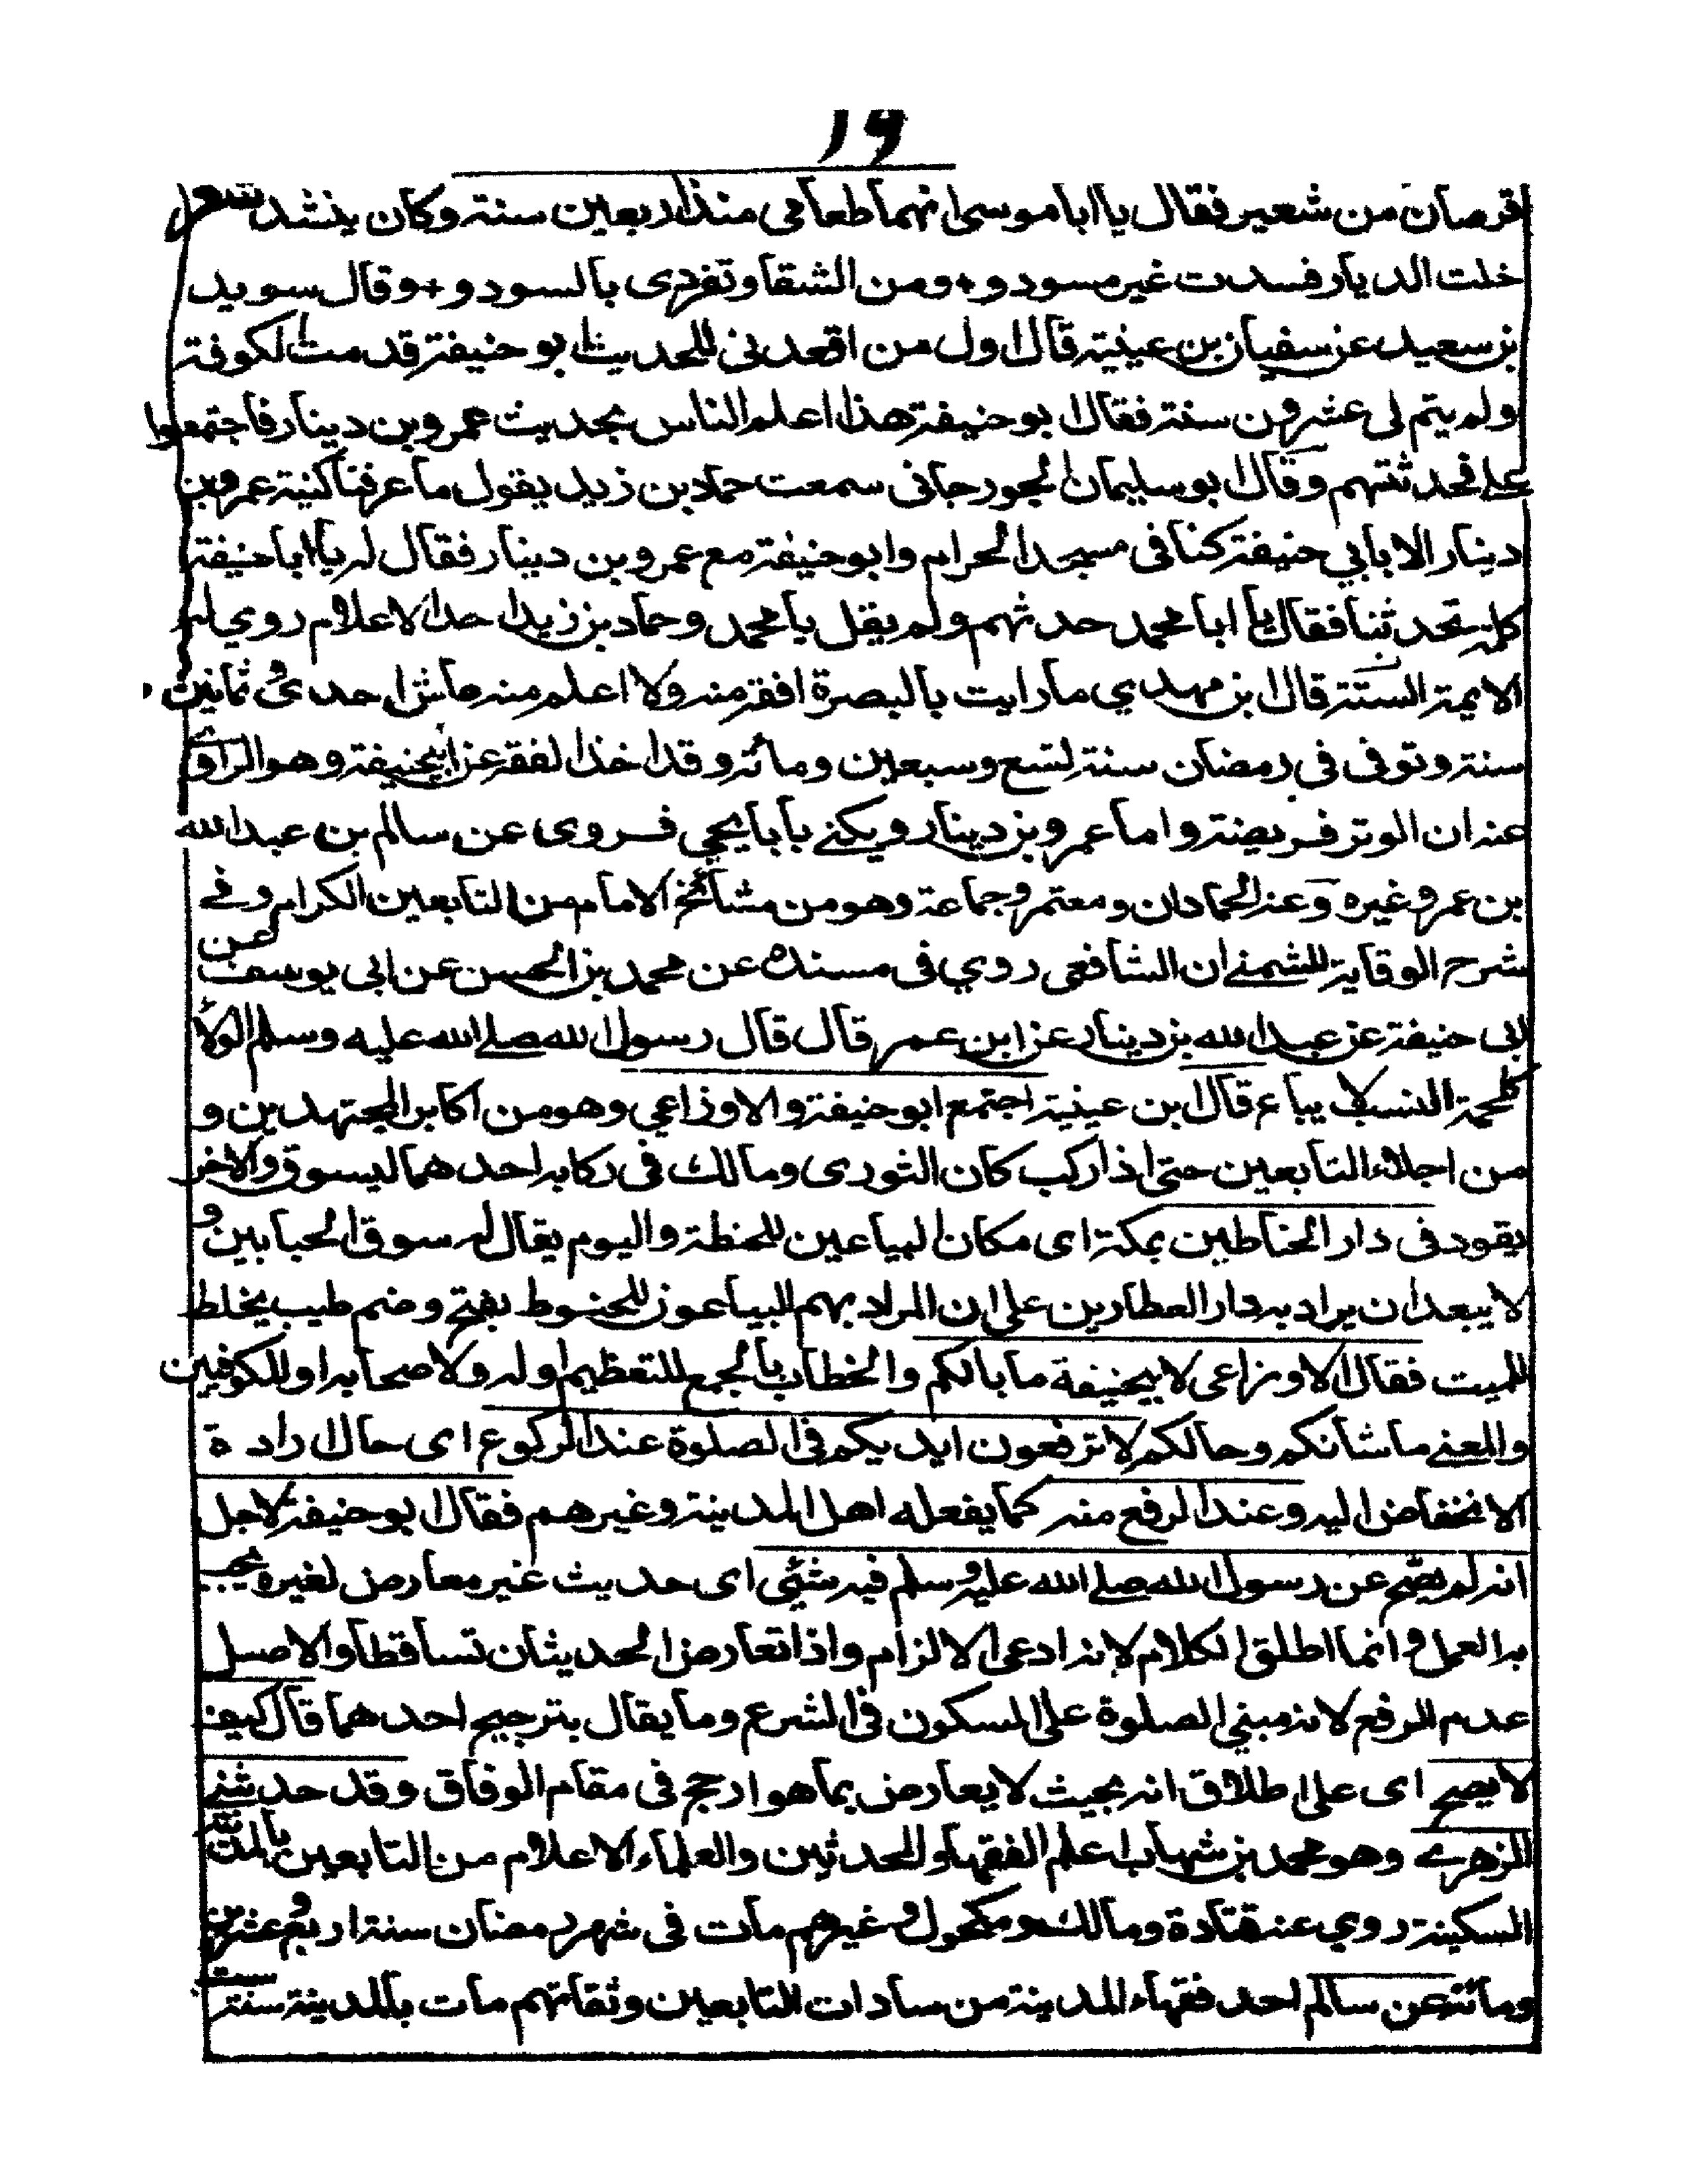 ١٦
قرصان من شعير فقال يا ابا موسى انهما طعامى منذ اربعين سنة وكان ينشد شعرا
خلت الديار فسدت غير مسود و+ومن الشقاء تفردى بالسودد و+وقال سويد
بن سعيد عن سفيان بن عيينة قال اول من اقعدنى للحديث ابو حنيفة قدمت الكوفة
ولم يتم لى عشرون سنة فقال ابو حنيفة هذا اعلم الناس بحديث عمرو بن دينار فاجتمعوا
على فحدثتهم وقال ابو سليمان الجورجانى سمعت حماد بن زيد يقول ما عرفنا كنية عمرو بن
دينار الا بابي حنيفة كنا فى مسجد الحرام وابو حنيفة مع عمرو بن دينار فقال له يا ابا حنيفة
كلمه تحدثنا فقال يا ابا محمد حدثهم ولم يقل يا محمد وحماد بن زيد احد الاعلام روي له
الايمة الستة قال ابن مهدي ما رايت بالبصرة افقه منه ولا اعلم منه عاش احدى وثمانين
سنة وتوفى فى رمضان سنة تسع وسبعين ومائة وقد اخذ الفقه عن ابيحنيفة وهو الراوى
عنه ان الوتر فريضة واما عمرو بن دينار ويكنى بابا يحيى فروى عن سالم بن عبد الله
بن عمر وغيره وعنه الحمادان ومعتمر وجماعة وهو من مشائخ الامام من التابعين الكرام وفى
شرح الوقاية للشمنى ان الشافعى روي فى مسنده عن محمد بن الحسن عن ابى يوسف عن
ابى حنيفة عن عبد الله بن دينار عن ابن عمر قال قال رسول الله صلى الله عليه وسلم الولاء
كلحمة النسب لا يباع قال ابن عيينة اجتمع ابو حنيفة والاوزاعي وهو من اكابر المجتهدين و
من اجلاء التابعين حتى اذا ركب كان الثورى ومالك فى ركابه احدهما ليسوق والاخر
يقود فى دار الحناطين بمكة اى مكان البياعين للحنطة واليوم يقال له سوق الحبابين و
لا يبعد ان يراد به دار العطارين على ان المراد بهم البياعون للحنوط بفتح وضم طيب يخلط
للميت فقال الاوزاعى لابيحنيفة ما بالكم والخطاب بالجمع للتعظيم او له ولاصحابه او للكوفين
والمعنى ما شانكم وحالكم لا ترفعون ايديكم فى الصلوة عند الركوع اى حال ارادة
الانخفاض اليه وعند الرفع منه كما يفعله اهل المدينة وغيرهم فقال ابو حنيفة لاجل
انه لم يصح عن رسول الله صلى الله عليه وسلم فيه شئى اى حديث غير معارض لغيره يجب
به العمل وانما اطلق الكلام لانه ادعى الالزام واذا تعارض الحديثان تساقطا والاصل
عدم الرفع لانه مبني الصلوة على السكون فى الشرع وما يقال بترجيح احدهما قال كيف
لا يصح اى على اطلاق انه بحيث لا يعارض بما هو ارجح فى مقام الوفاق وقد حدثنى
الزهرى وهو محمد بن شهاب اعلم الفقهاء والمحدثين والعلماء الاعلام من التابعين بالمدينة
السكينة روي عنه قتادة ومالك ومكحول وغيرهم مات فى شهر رمضان سنة اربع وعشرين
ومائة عن سالم احد فقهاء المدينة من سادات التابعين وثقاتهم مات بالمدينة سنة ست